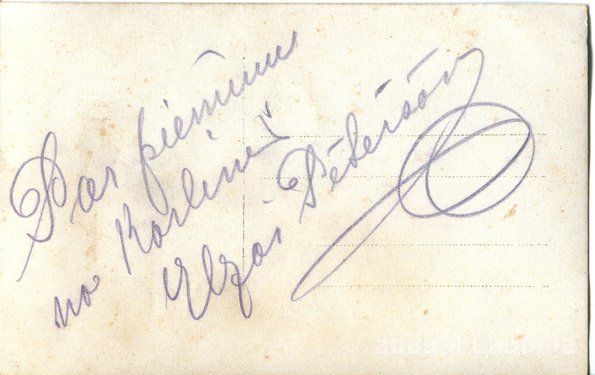 Par piemiņu
no Karlīnes
Elzai Pētersōn